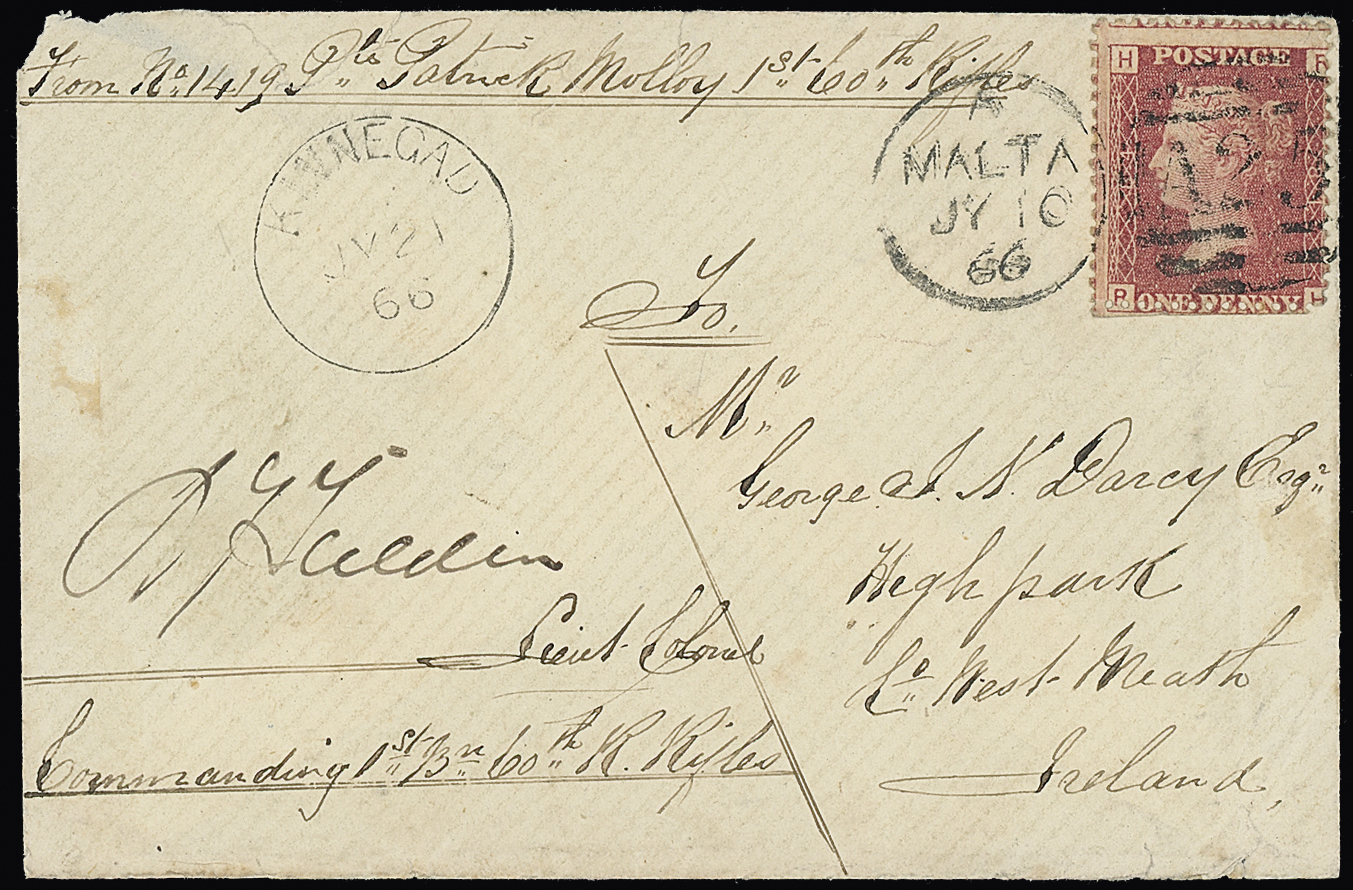 From No. 1419 Pte Patrick Molloy 1st 60th Rifles
KINNEGAD
JY 21
66
A
MALTA
JY 10
66
A25
H R
POSTAGE
R H
ONE PENNY
To.
Mr
George J. N. Darcy Esqr
High park
Co West Meath
Ireland,
Lieut Colonel
Commanding 1st Bn 60th R. Rifles